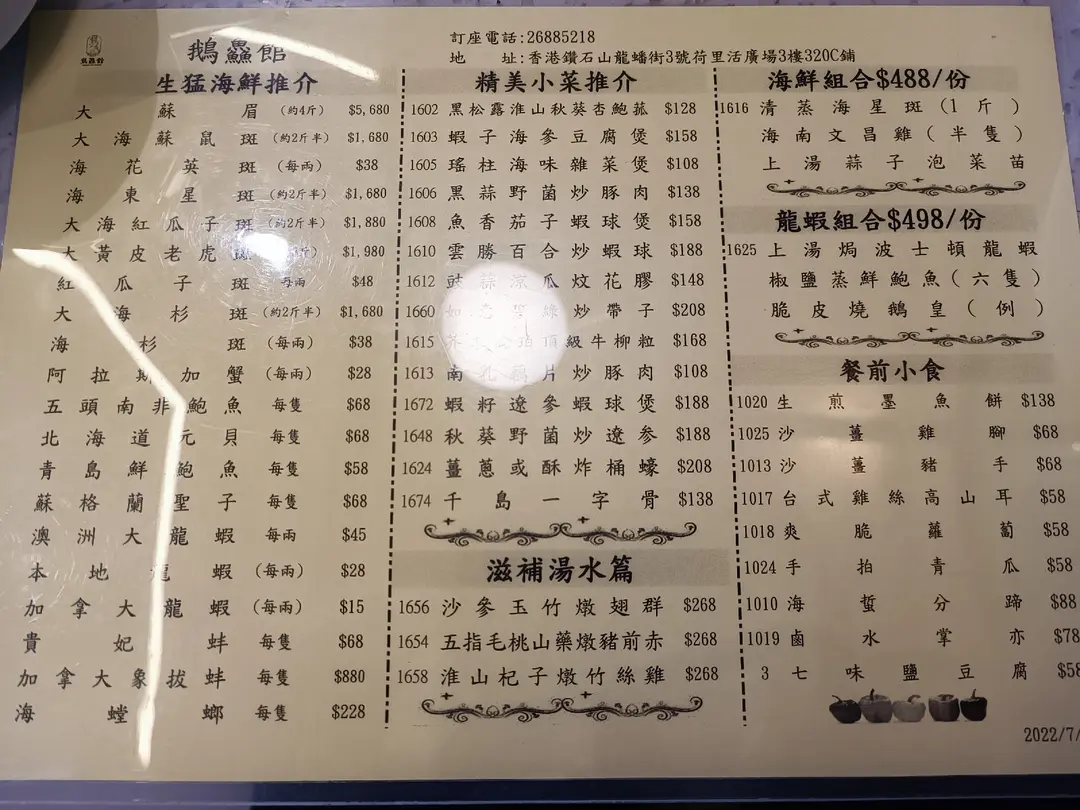 鵝鱻館
訂座電話:26885218
地 址:香港鑽石山龍蟠街3號荷里活廣場3樓320C鋪
生猛海鮮推介
大蘇眉(約4斤) $5,680
大海蘇鼠斑(約2斤半) $1,680
海花英斑(每兩) $38
海東星斑(約2斤半) $1,680
大海紅瓜子斑(約2斤半) $1,880
大黃皮老虎斑 斤) $1,980
紅瓜子斑 每兩 $48
大海杉斑(約2斤半) $1,680
海杉斑(每兩) $38
阿拉斯加蟹(每兩) $28
五頭南非鮑魚 每隻 $68
北海道元貝 每隻 $68
青島鮮鮑魚 每隻 $58
蘇格蘭聖子 每隻 $68
澳洲大龍蝦 每兩 $45
本地龍蝦(每兩) $28
加拿大龍蝦(每兩) $15
貴妃蚌 每隻 $68
加拿大象拔蚌 每隻 $880
海螳螂 每隻 $228
精美小菜推介
1602 黑松露淮山秋葵杏鮑菰 $128
1603 蝦子海參豆腐煲 $158
1605 瑤柱海味雜菜煲 $108
1606 黑蒜野菌炒豚肉 $138
1608 魚香茄子蝦球煲 $158
1610 雲勝百合炒蝦球 $188
1612 豉蒜涼瓜炆花膠 $148
1660 如 綠炒帶子 $208
1615 芥 頂級牛柳粒 $168
1613 南乳藕片炒豚肉 $108
1672 蝦籽遼參蝦球煲 $188
1648 秋葵野菌炒遼参 $188
1624 薑蔥或酥炸桶蠔 $208
1674 千島一字骨 $138
滋補湯水篇
1656 沙參玉竹燉翅群 $268
1654 五指毛桃山藥燉豬前赤 $268
1658 淮山杞子燉竹絲雞 $268
海鮮組合$488/份
1616 清蒸海星斑(1斤)
海南文昌雞(半隻)
上湯蒜子泡菜苗
龍蝦組合$498/份
1625 上湯焗波士頓龍蝦
椒鹽蒸鮮鮑魚(六隻)
脆皮燒鵝皇(例)
餐前小食
1020 生煎墨魚餅 $138
1025 沙薑雞腳 $68
1013 沙薑豬手 $68
1017 台式雞絲高山耳 $58
1018 爽脆蘿蔔 $58
1024 手拍青瓜 $58
1010 海蜇分蹄 $88
1019 鹵水掌亦 $78
3 七味鹽豆腐 $58
2022/7/